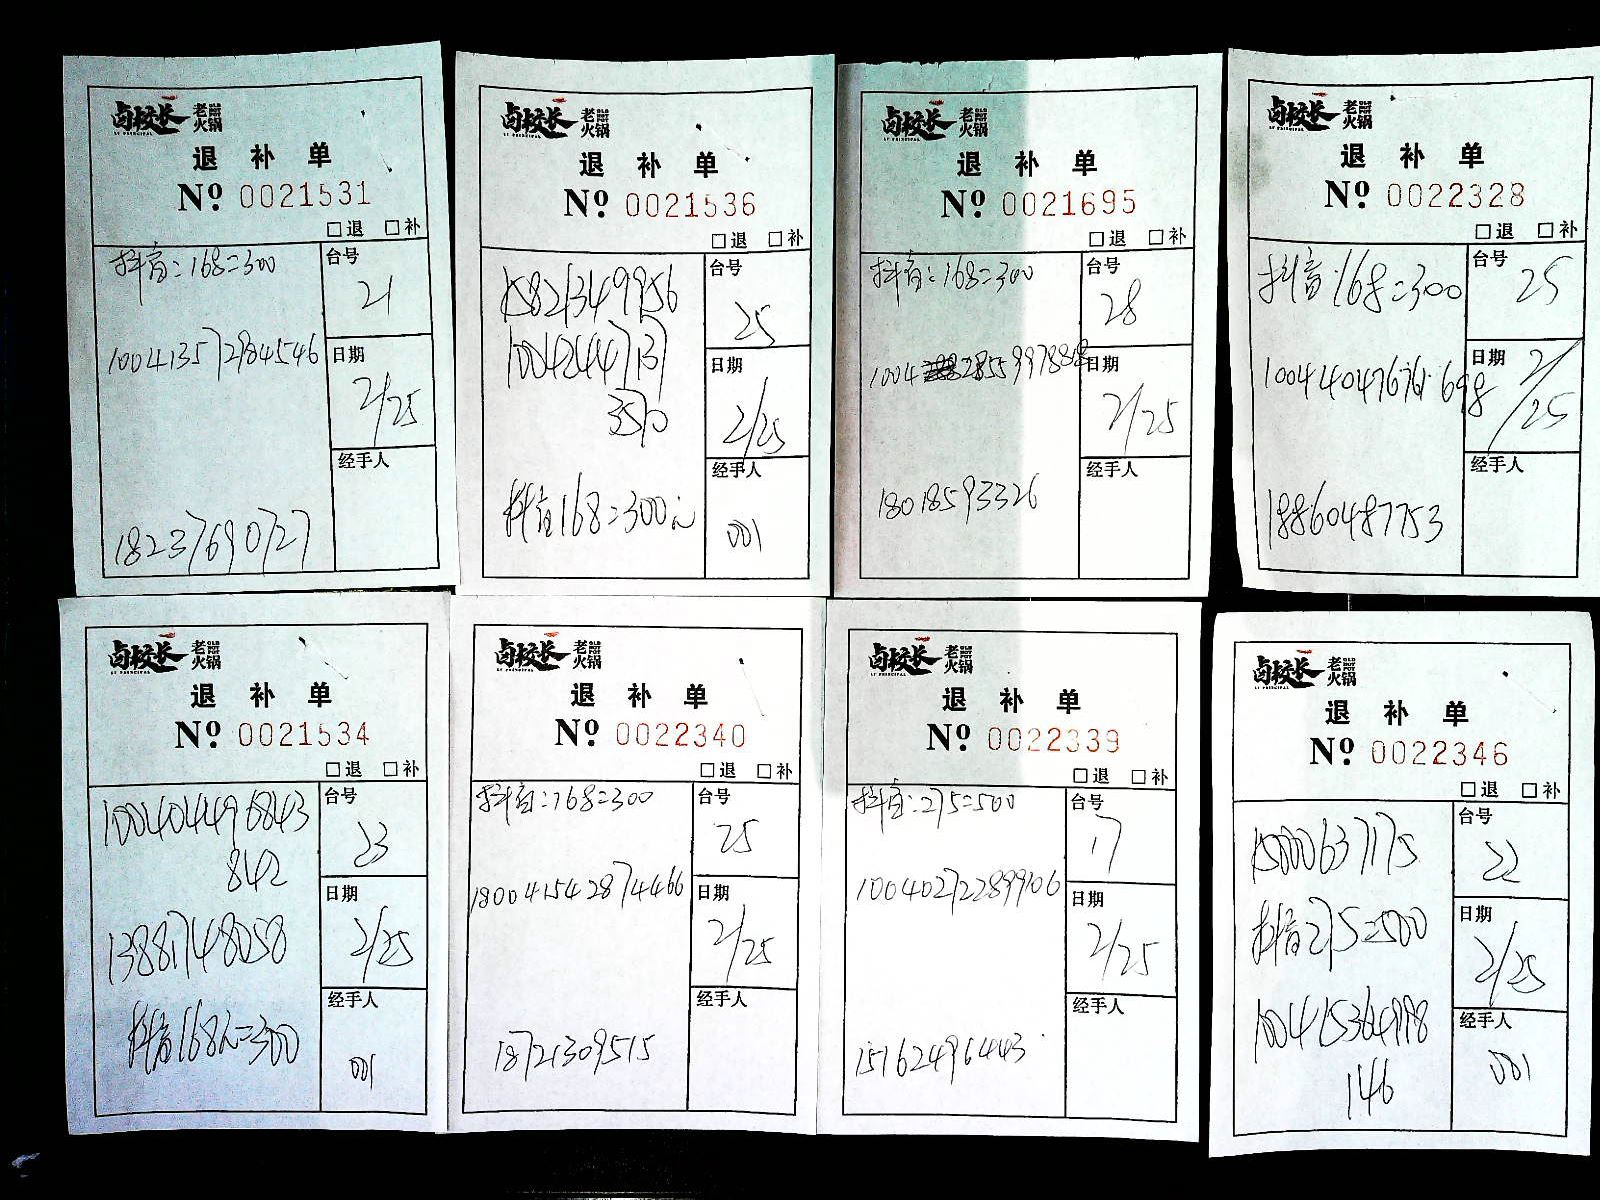 卤校长 老火锅
LU PRINCIPAL
退补单
Nº 0021531
□退 □补
抖音:168=300
台号
21
100413572984546
日期
2/25
经手人
18237690727
卤校长 老火锅
LU PRINCIPAL
退补单
Nº 0021536
□退 □补
15821349956
台号
25
100424447137
3570
日期
2/25
经手人
抖音168=300元
001
卤校长 老火锅
LU PRINCIPAL
退补单
Nº 0021695
□退 □补
抖音:168=300
台号
28
日期
2/25
经手人
18018593326
卤校长 老火锅
LU PRINCIPAL
退补单
Nº 0022328
□退 □补
抖音:168=300
台号
25
100440476761698
日期
2/25
经手人
18860487753
卤校长 老火锅
LU PRINCIPAL
退补单
Nº 0021534
□退 □补
100404496843
842
台号
23
13881748058
日期
2/25
经手人
抖音168元=300
001
卤校长 老火锅
LU PRINCIPAL
退补单
Nº 0022340
□退 □补
抖音:168=300
台号
25
180041542874466
日期
2/25
经手人
18721309515
卤校长 老火锅
LU PRINCIPAL
退补单
Nº 0022339
□退 □补
抖音:275=500
台号
17
100402722899106
日期
2/25
经手人
15162496443
卤校长 老火锅
LU PRINCIPAL
退补单
Nº 0022346
□退 □补
15000637175
台号
22
抖音275=500
日期
2/25
100415364998
146
经手人
001